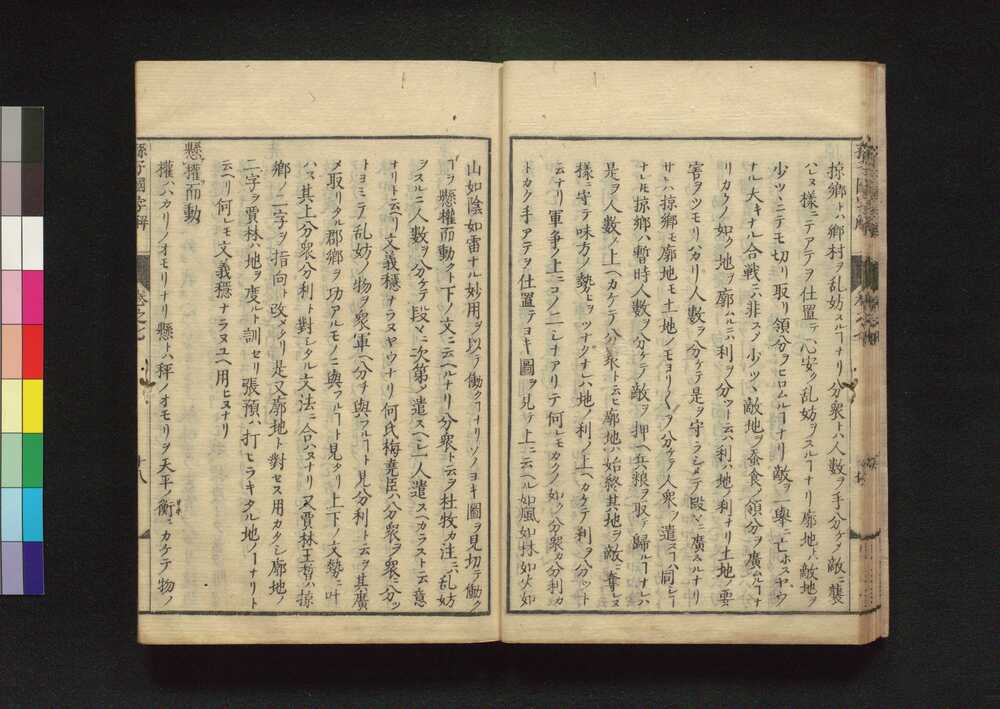 掠鄕トハ鄕村ヲ乱妨スルヿナリ分衆トハ人数ヲ手分ケメ敵ニ襲
ハレヌ樣ニテアテヲ仕置テ心安ク乱妨ヲスルヿナリ廓地トハ敵地ヲ
少ツヽニテモ切リ取リ領分ヲヒロムルヿナリ敵ヲ一擧ニ亡ホスヤウ
ナル大キナル合戰ニハ非ス少ツヽ敵地ヲ蚕食ノ領分ヲ廣ムルヿナ
リカクノ如ク地ヲ廓ムルニハ利ヲ分ツト云ハ利ハ地ノ利ナリ土地ノ要
害ヲツモリハカリ人數ヲ分ケテ是ヲ守ラシメテ段々ニ廣ムルナリ
サレハ掠鄕モ廓地モ土地ノモヨリ〱ヲ分ケテ人衆ヲ遣スヿハ同シヿ
ナレ𪜈掠鄕ハ暫時人數ヲ分ケテ敵ヲ押ヘ兵粮ヲ取テ歸ルヿナレハ
是ヲ人數ノ上ヘカケテ分衆ト云ヒ廓地ハ始終其地ヲ敵ニ奪レヌ
樣ニ守テ味方ノ勢ヒヲツナクナレハ地ノ利ノ上ヘカケテ利ヲ分ツト
云ナリ軍爭ノ上ニコノ二シナアリテ何レモカクノ如ク分衆カ分利カ
トカク手アテヲ仕置テヨキ圖ヲ見テ上ニ云ヘル如風如林如火如
山如陰如雷ナル妙用ヲ以テ働クヿナリソノヨキ圖ヲ見切テ働ク
ヿヲ懸權而動クト下ノ文ニ云ヘルナリ分衆ト云ヲ杜牧カ注ニハ乱妨
ヲスルニ人數ヲ分ケテ段々ニ次第シ遣スヘシ一人遣スヘカラストニ云意
ナリト云ヘリ文義穩ナラヌヤウナリ何氏梅堯臣ハ分衆ヲ衆ニ分ツ
トヨミテ乱妨ノ物ヲ衆軍ヘ分チ與フルヿト見分利ト云ヲ其廣
メ取リタル郡鄕ヲ功アルモノニ與フルヿト見タリ上下ノ文勢ニ叶
ハス其上分衆分利ト對シタル文法ニ合ハヌナリ又賈林王晳ハ掠
鄕ノ二字ヲ指向ト改メタリ是又廓地ト對セス用カタシ廓地ノ
二字ヲ賈林ハ地ヲ度ルト訓セリ張預ハ打ヒラキタル地ノヿナリト
云ヘリ何レモ文義穩ナラヌユヘ用ヒヌナリ
懸權而動
權ハハカリノオモリナリ懸トハ秤ノオモリヲ天平ノ衡ニカケテ物ノ
孫子國字解
卷之七
十八